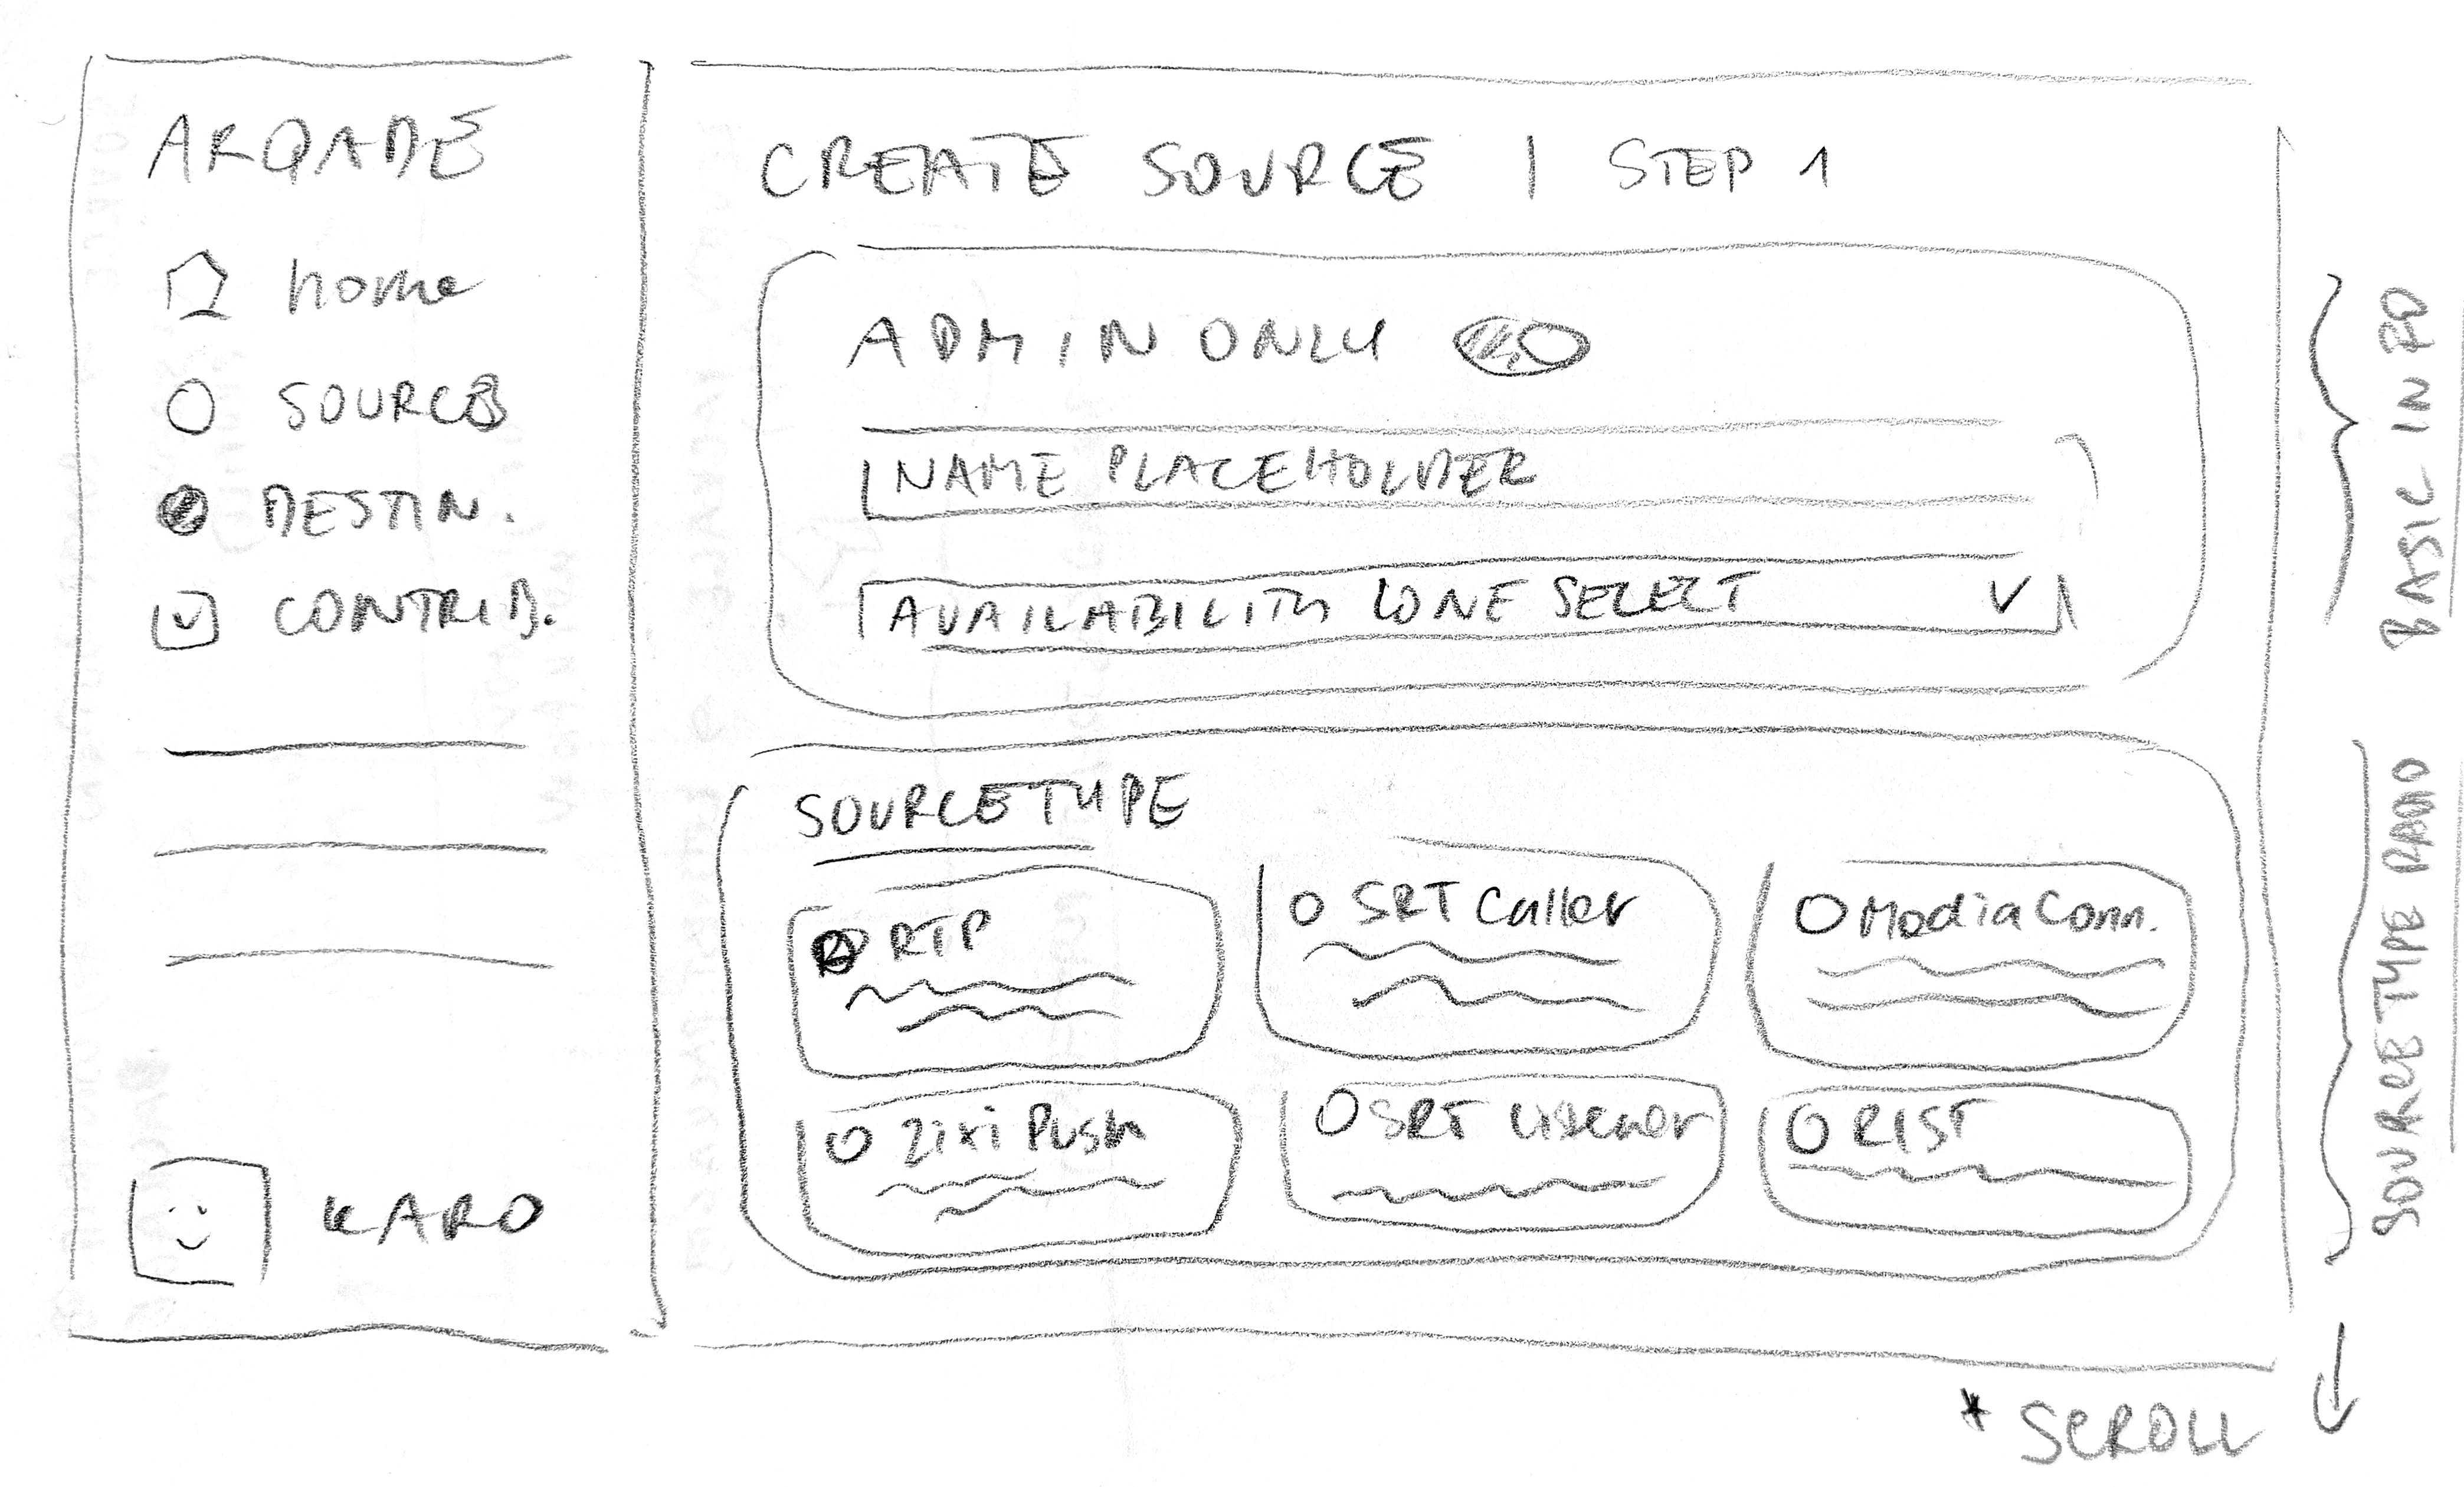 ARQADE
home
SOURCES
DESTIN.
CONTRIB.
KARO
CREATE SOURCE | STEP 1
ADMIN ONLY
NAME PLACEHOLDER
AVAILABILITY ZONE SELECT
SOURCE TYPE
RTP
SRT Caller
Media Conn.
Zixi Push
SRT Listener
RIST
BASIC INFO
SOURCE TYPE RADIO
* SCROLL